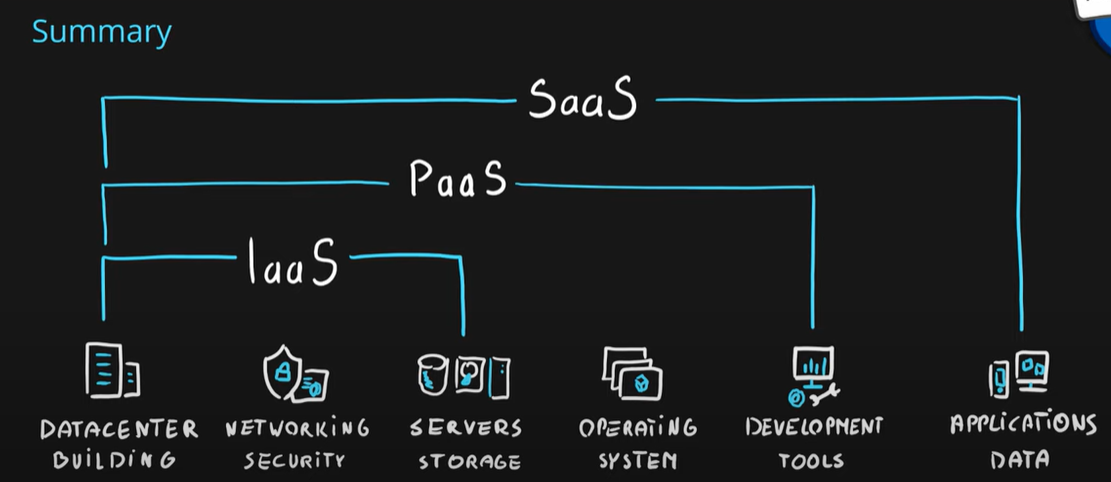 Summary
SaaS
PaaS
IaaS
DATACENTER
BUILDING
NETWORKING
SECURITY
SERVERS
STORAGE
OPERATING
SYSTEM
DEVELOPMENT
TOOLS
APPLICATIONS
DATA